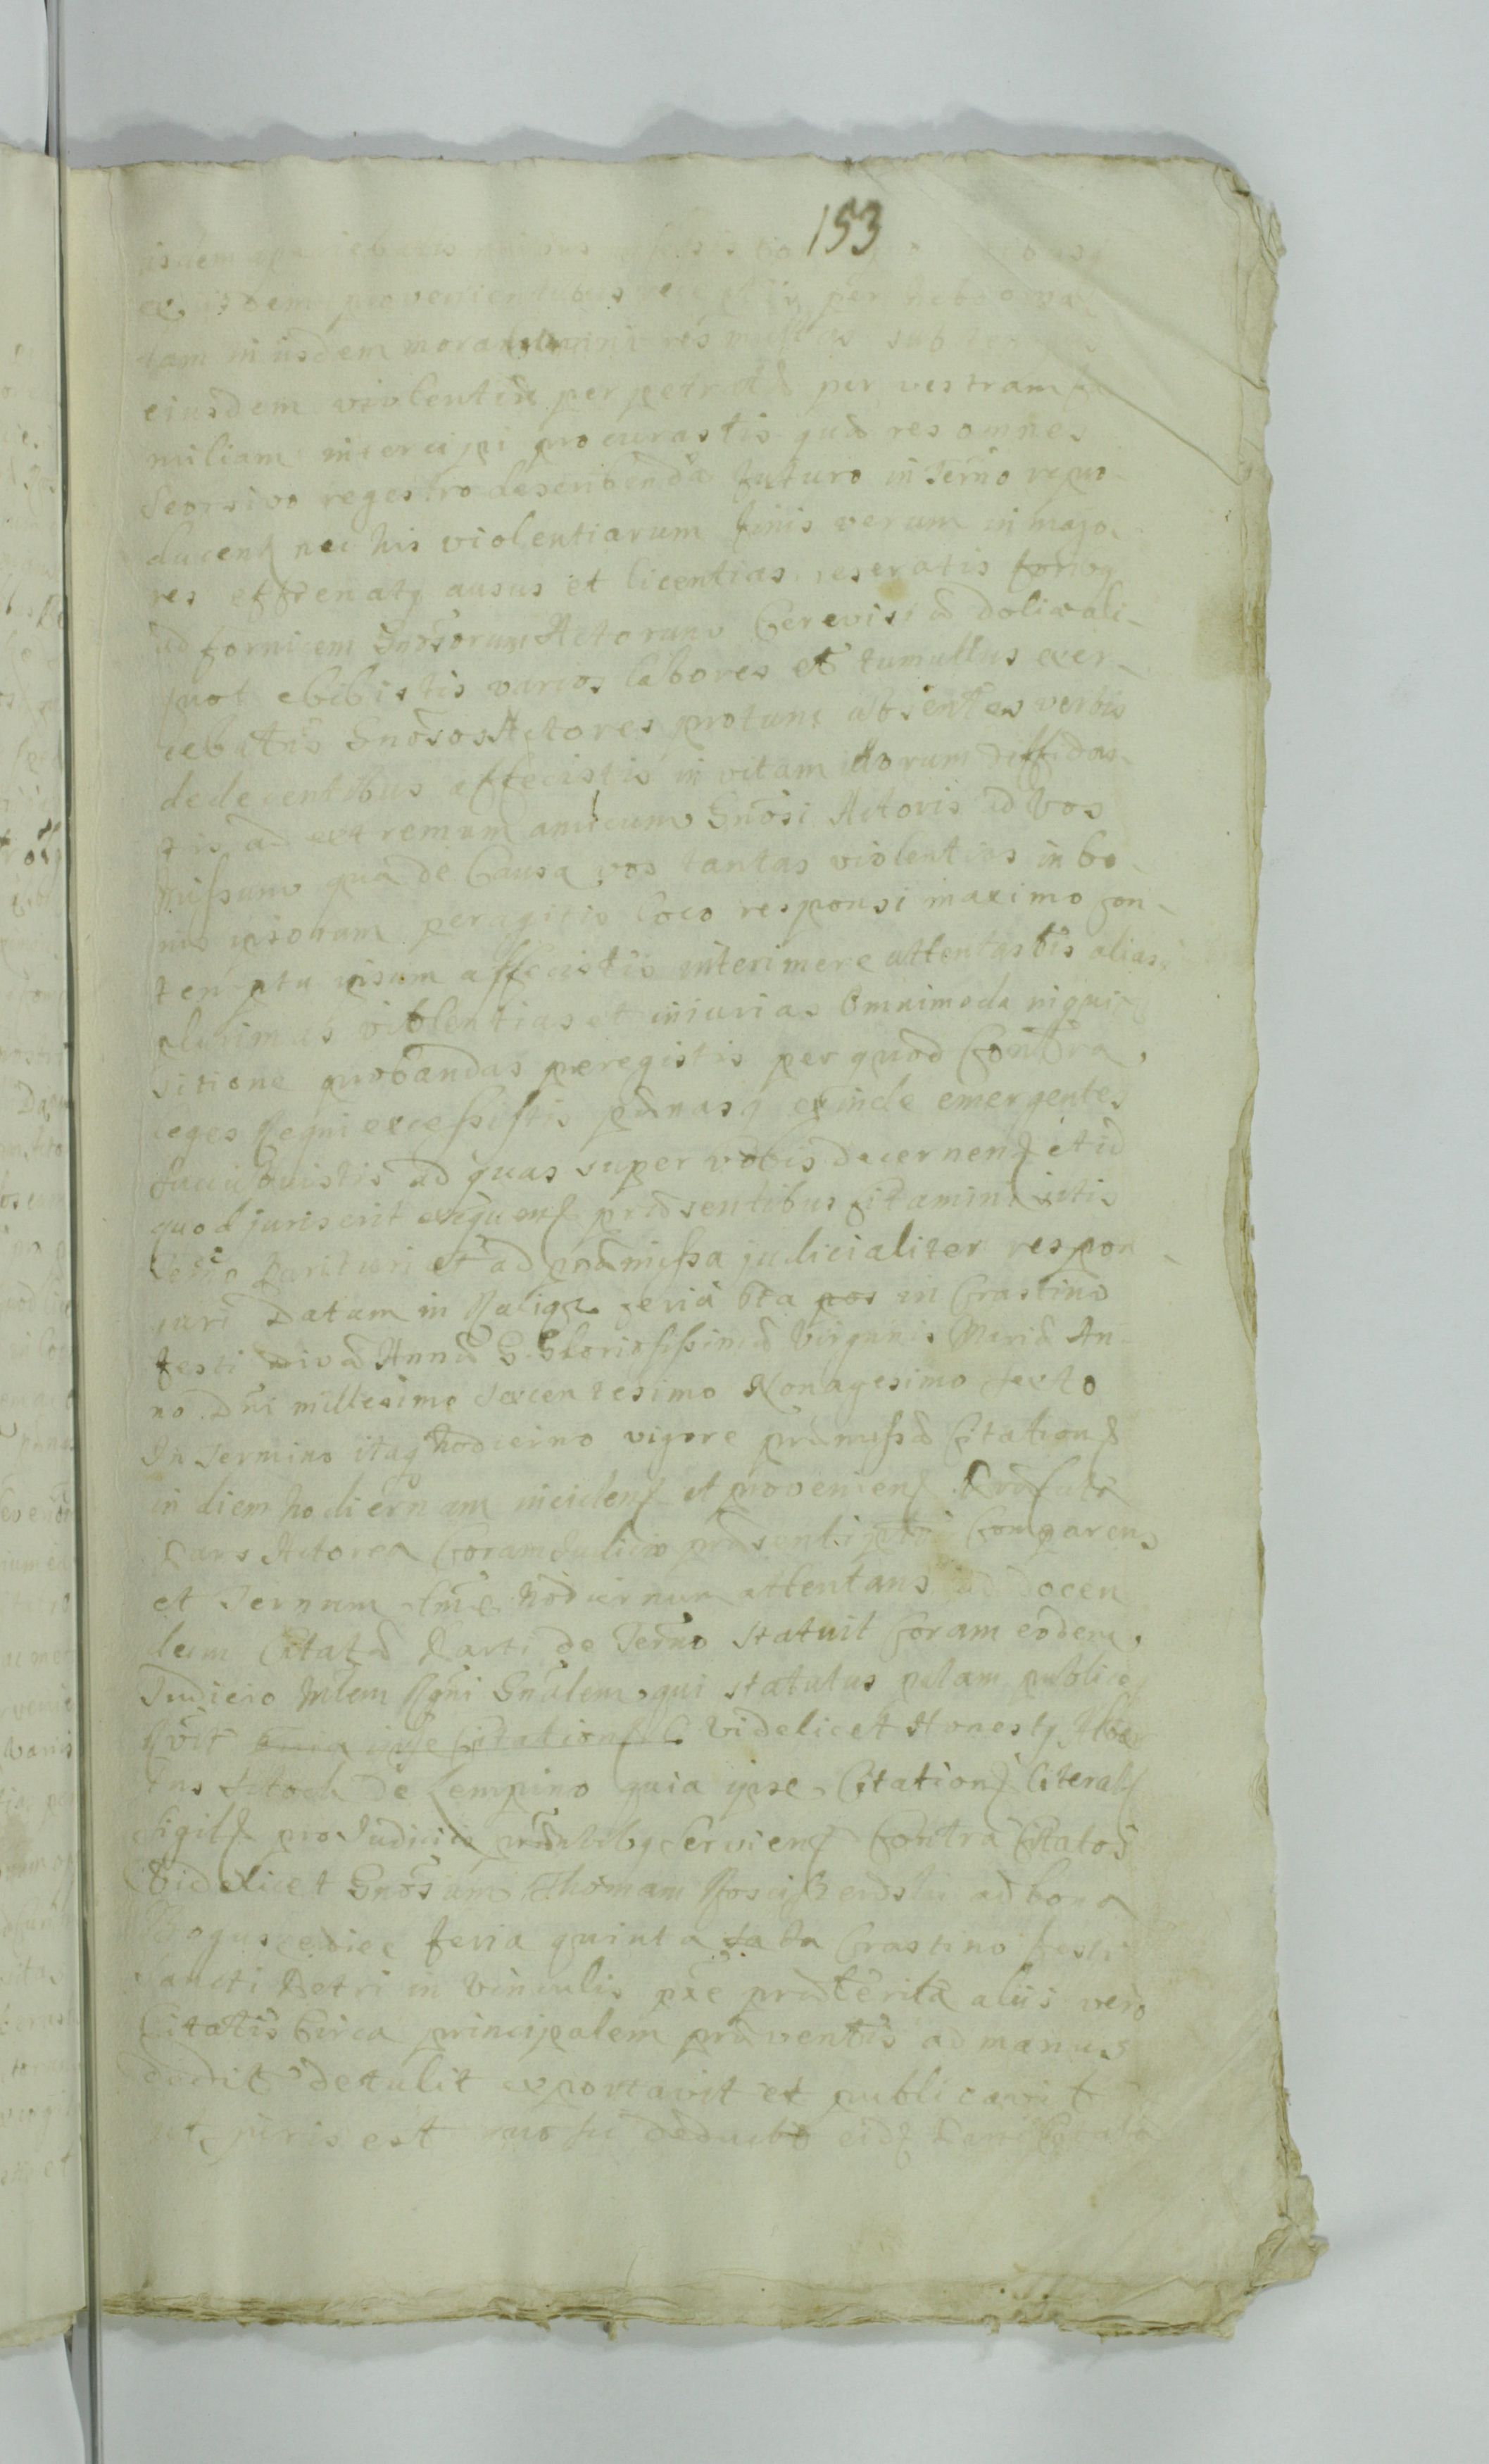 153
isdem
eisdem provenientibus per
tam in iisdem morandum res sub
eiusdem violentiæ perpetratæ per vestram fa
miliam intercipi procurastis quæ res omnes
Seorsivo regestro describendæ futuro in Termo repro
ducent nec his violentiarum finis verum in majo
res effrenatq ausus et licentias reseratis
ad fornicem Gnosorum Actorum Cerevisiæ dolia ali-
quot ebibistis varios labores et tumultus exer-
cebatis Gnosos Actores protunc absentes verbis
dedecentibus affecistis in vitam illorum diffidas-
tis ad extremum amicum Gnosi Actoris ad Vos
missum qua de Causa vos tantas violentias in bo-
nis ipsorum peragitis loco responsi maximo con-
temptu ipsum affecistis interimere attentastis alias
plurimas violentias et iniurias Omnimoda inqui-
sitione probandas peregistis per quod Contra
leges Regni excessistis pænasq exinde emergentes
succubuistis ad quas super vobis decernend et id
quod juris erit exequend præsentibus citamini sitis
Termo parituri et ad præmissa judicialiter respon
suri Datum in Kalisz feria 6ta pos in Crastino
festi Divæ Annæ G Gloriosissimæ Virginis Mariæ An-
no Dni millesimo Sexcentesimo Nonagesimo sexto
In Termino itaq hodierno vigore præmissæ Citationis
in diem hodiernam inciden et provenien Præfata
Pars Actorea Coram Judicio præsenti ptni Comparens
et Ternum sme hodiernum attentans ad docen
dum Citatæ Parti de Terno statuit Coram eodem
Judicio Mlem Rgni Gnalem qui statutus palam publice
Rvit quia ipse Citationis C Videlicet Honestq Alber
tus Ktoch de Lempino quia ipse Citation literal
sigill pro Judiciis pntibq Servien Contra Citatos
Videlicet Gnosum Thomam ad bona
feria quinta in Crastino festi
Sancti Petri in Vinculis pxe præterita aliis vero
Citatis Circa principalem præventis ad manus
dedit detulit exportavit et publicavit
ut juris est quo sic deducto eid Parti Citatæ